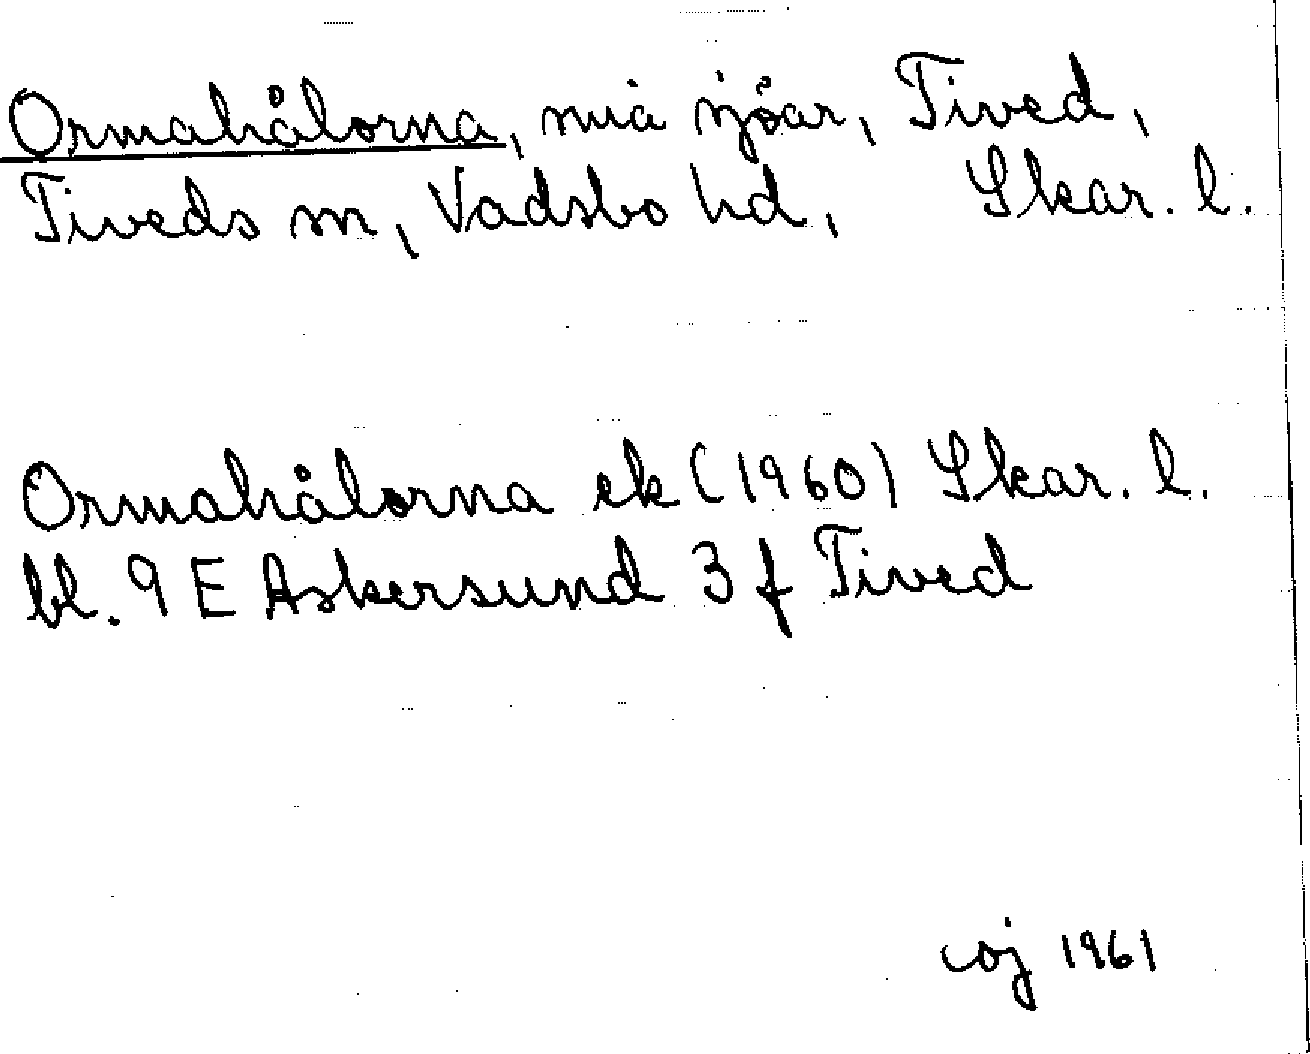 Ormahålorna, små sjöar, Tived,
Tiveds sn, Vadsbo hd, Skar. l.
Ormahålorna ek (1960) Skar. l.
bl. 9 E Askersund 3 f Tived
coj 1961